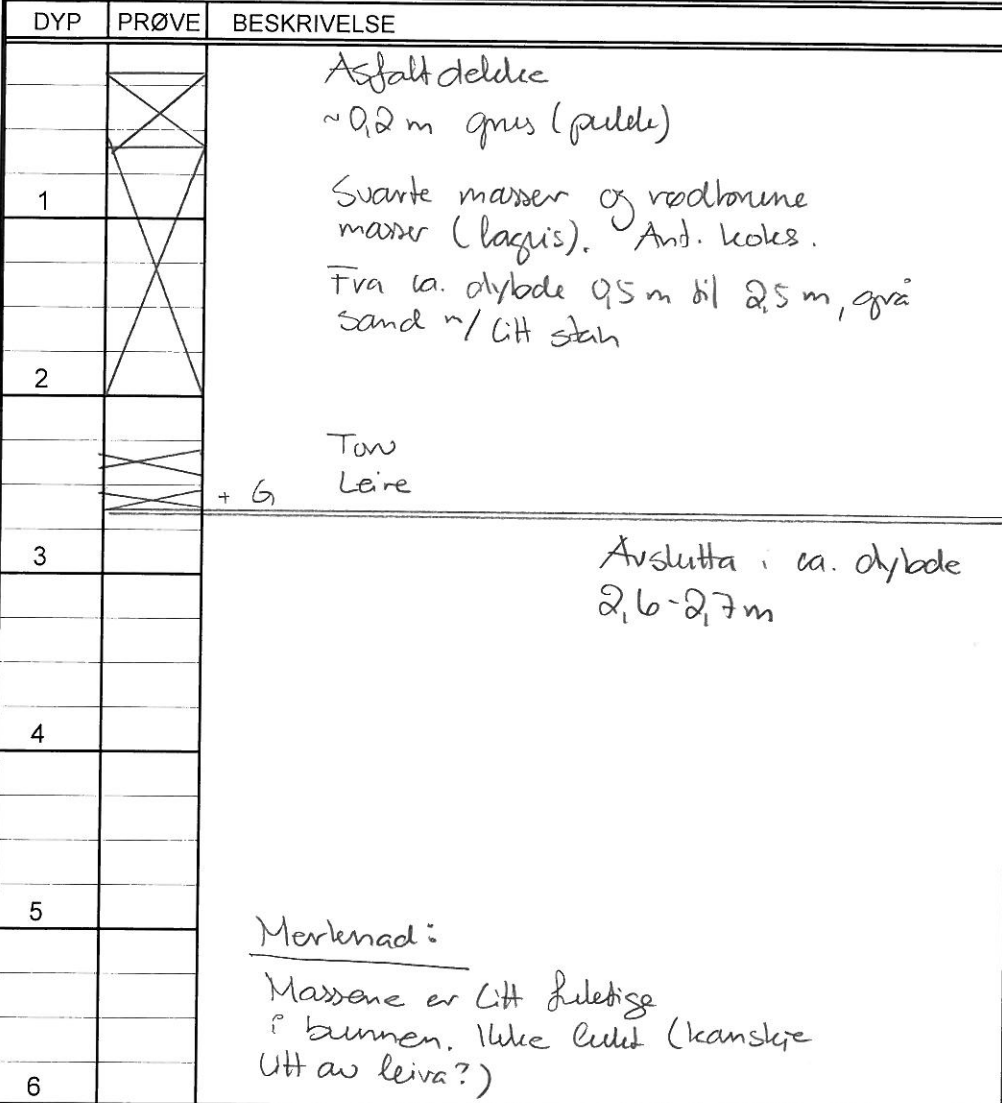 DYP PRØVE BESKRIVELSE
Asfaltdekke
~0,2 m grus (pukk)
1
Svarte masser og rødbrune
masser (lagvis). Ant. koks.
Fra ca. dybde 0,5 m til 2,5 m, grå
sand m/ litt stein
2
Torv
+ G Leire
3
Avslutta i ca. dybde
2,6-2,7 m
4
5
Merknad:
Massene er litt fuktige
i bunnen. Ikke lukt (kanskje
litt av leira?)
6